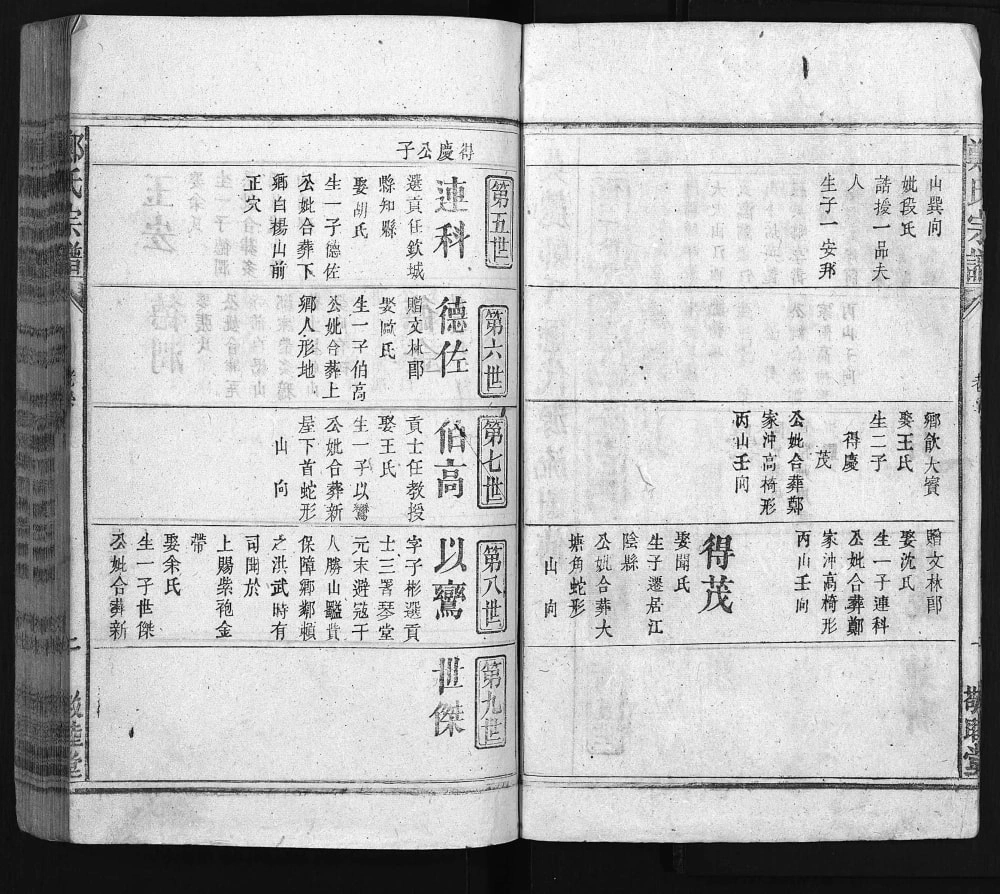 鄭氏宗譜
山巽向
妣段氏
誥援一品夫
人
生子一安邦
鄉飲大賓
娶王氏
生二子
得慶
茂
公妣合葬鄭
家沖高椅形
丙山壬向
贈文林郎
娶沈氏
生一子連科
公妣合葬鄭
家沖高椅形
丙山壬向
得茂
娶聞氏
生子遷居江
陰縣
公妣合葬大
塘角蛇形
山向
敬睦堂
得慶公子
第五世
連科
選貢任欽城
縣知縣
娶胡氏
生一子德佐
公妣合葬下
鄉白楊山前
正穴
第六世
德佐
贈文林郎
娶氏
生一子伯高
公妣合葬上
鄉人形地
第七世
伯高
貢士任教授
娶王氏
生一子以鸞
公妣合葬新
屋下首蛇形
山向
第八世
以鸞
字子彬選貢
士三署琴堂
元末避寇于
人勝山鷁貴
保障鄉鄰賴
之洪武時有
司聞於
上賜紫袍金
帶
娶余氏
生一子世傑
公妣合葬新
第九世
世傑
鄭氏宗譜
二
敬睦堂